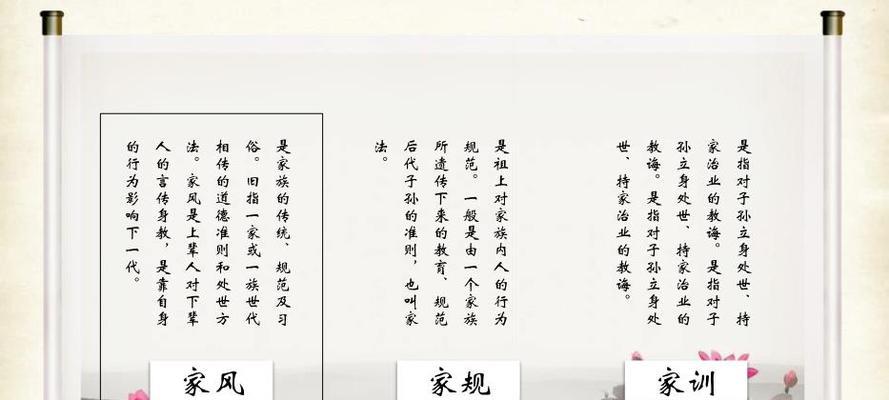 是指对子孙立身处世、持
家治业的教诲。是指对子
孙立身处世、持家治业的
教诲。是指对子孙立身处
世、持家治业的教诲。
家训
是祖上对家族内人的行为
规范。一般是由一个家族
所遗传下来的教育、规范
后代子孙的准则，也叫家
法。
家规
是家族的传统、规范及习
俗。旧指一家或一族世代
相传的道德准则和处世方
法。家风是上辈人对下辈
人的言传身教，是靠自身
的行为影响下一代。
家风